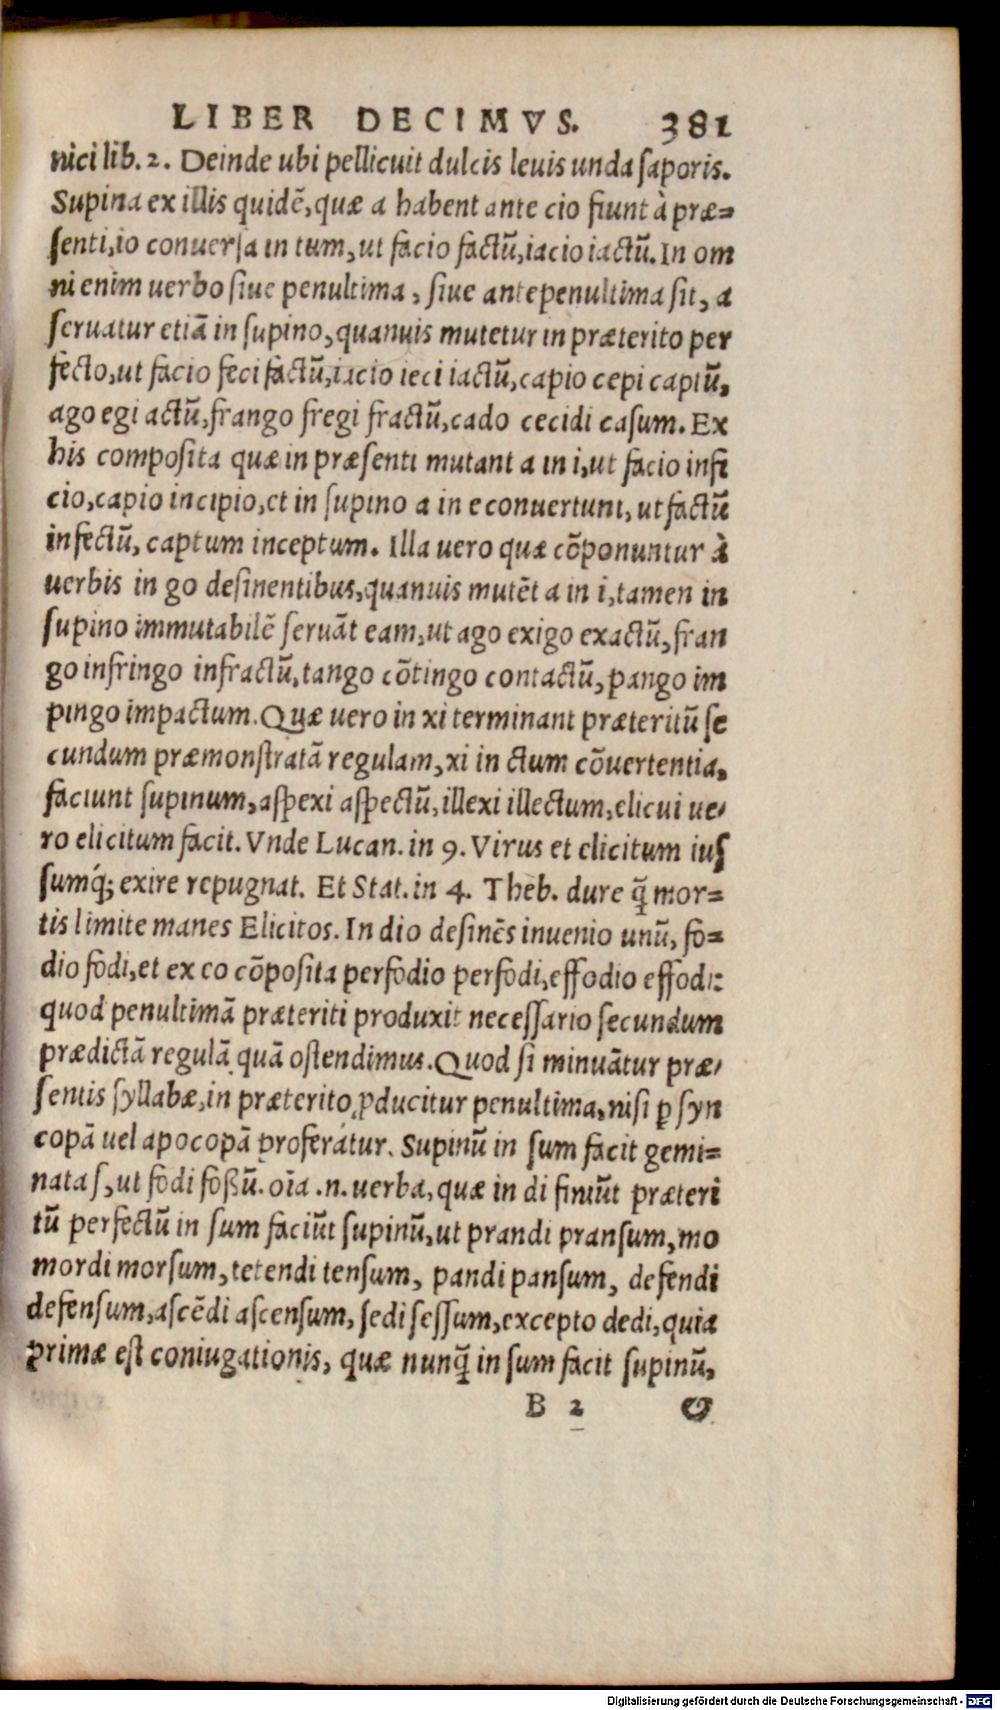 LIBER DECIMVS. 381
nici lib. 2. Deinde ubi pellicuit dulcis leuis unda saporis.
Supina ex illis quidẽ, quæ a habent ante cio fiunt à præ=
senti, io conuersa in tum, ut facio factũ, iacio iactũ. In om
ni enim uerbo siue penultima, siue antepenultima sit, a
seruatur etiã in supino, quanuis mutetur in præterito per
fecto, ut facio feci factũ, iacio ieci iactũ, capio cepi captũ,
ago egi actũ, frango fregi fractũ, cado cecidi casum. Ex
his composita quæ in præsenti mutant a in i, ut facio infi
cio, capio incipio, et in supino a in e conuertunt, ut factũ
infectũ, captum inceptum. Illa uero quæ cõponuntur à
uerbis in go desinentibus, quanuis mutẽt a in i, tamen in
supino immutabilẽ seruãt eam, ut ago exigo exactũ, fran
go infringo infractũ, tango cõtingo contactũ, pango im
pingo impactum. Quæ uero in xi terminant præteritũ se
cundum præmonstratã regulam, xi in ctum cõuertentia,
faciunt supinum, aspexi aspectũ, illexi illectum, elicui ue-
ro elicitum facit. Vnde Lucan. in 9. Virus et elicitum ius
sumq́; exire repugnat. Et Stat. in 4. Theb. dure q̃ mor=
tis limite manes Elicitos. In dio desinẽs inuenio unũ, fo=
dio fodi, et ex eo cõposita perfodio perfodi, effodio effodi:
quod penultimã præteriti produxit necessario secundum
prædictã regulã quã ostendimus. Quod si minuãtur præ-
sentis syllabæ, in præterito ꝓducitur penultima, nisi ꝑ syn
copã uel apocopã proferátur. Supinũ in sum facit gemi=
nata s, ut fodi foßũ. oĩa .n. uerba, quæ in di finiũt præteri
tũ perfectũ in sum faciũt supinũ, ut prandi pransum, mo
mordi morsum, tetendi tensum, pandi pansum, defendi
defensum, ascẽdi ascensum, sedi sessum, excepto dedi, quia
primæ est coniugationis, quæ nunq̃ in sum facit supinũ,
B 2 &
Digitalisierung gefördert durch die Deutsche Forschungsgemeinschaft - DFG